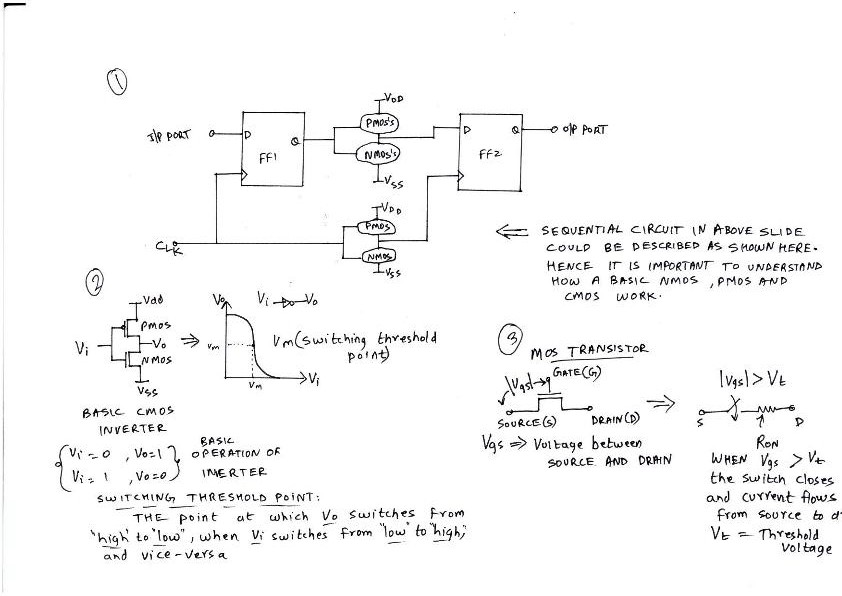 1
VDD
I/P PORT
D
Q
FF1
PMOS's
NMOS's
VSS
D
Q
FF2
O/P PORT
VDD
PMOS
NMOS
VSS
CLK
⇐ SEQUENTIAL CIRCUIT IN ABOVE SLIDE
COULD BE DESCRIBED AS SHOWN HERE.
HENCE IT IS IMPORTANT TO UNDERSTAND
HOW A BASIC NMOS, PMOS AND
CMOS WORK.
2
Vdd
PMOS
Vi
Vo
NMOS
Vss
⇒
Vo
Vi
Vo
Vm
Vm (switching threshold
point)
Vm
Vi
BASIC CMOS
INVERTER
Vi = 0 , Vo=1
Vi = 1 , Vo=0
BASIC
OPERATION OF
INVERTER
SWITCHING THRESHOLD POINT:
THE point at which Vo switches from
"high" to "low", when Vi switches from "low" to "high",
and vice-versa
3
MOS TRANSISTOR
|Vgs|
GATE(G)
SOURCE(S)
DRAIN(D)
Vgs ⇒ Voltage between
SOURCE AND DRAIN
⇒
|Vgs| > Vt
S
D
RON
WHEN Vgs > Vt
the switch closes
and current flows
from source to d
Vt = Threshold
voltage